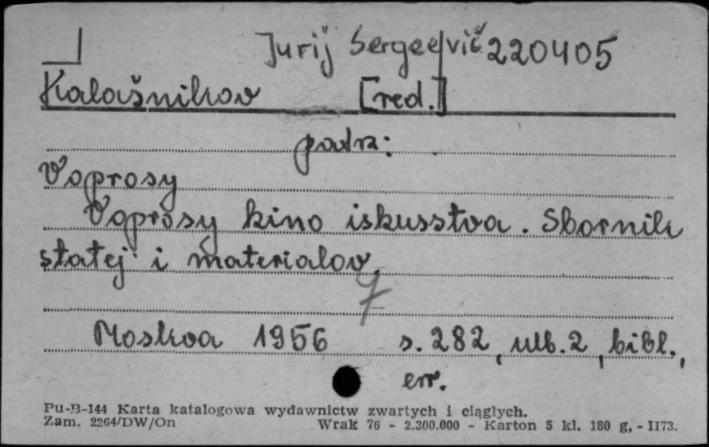 Jurij Sergeevič 220405
Kalašnikov [red.]
patrz:
Voprosy
Voprosy kino iskusstva. Sbornik
statej i materialov.
7
Moskva 1956 s. 282, ulb. 2, bibl.,
err.
Pu-B-144 Karta katalogowa wydawnictw zwartych i ciągłych.
Zam. 2264/DW/On Wrak 76 - 2.300.000 - Karton 5 kl. 180 g, - II73.